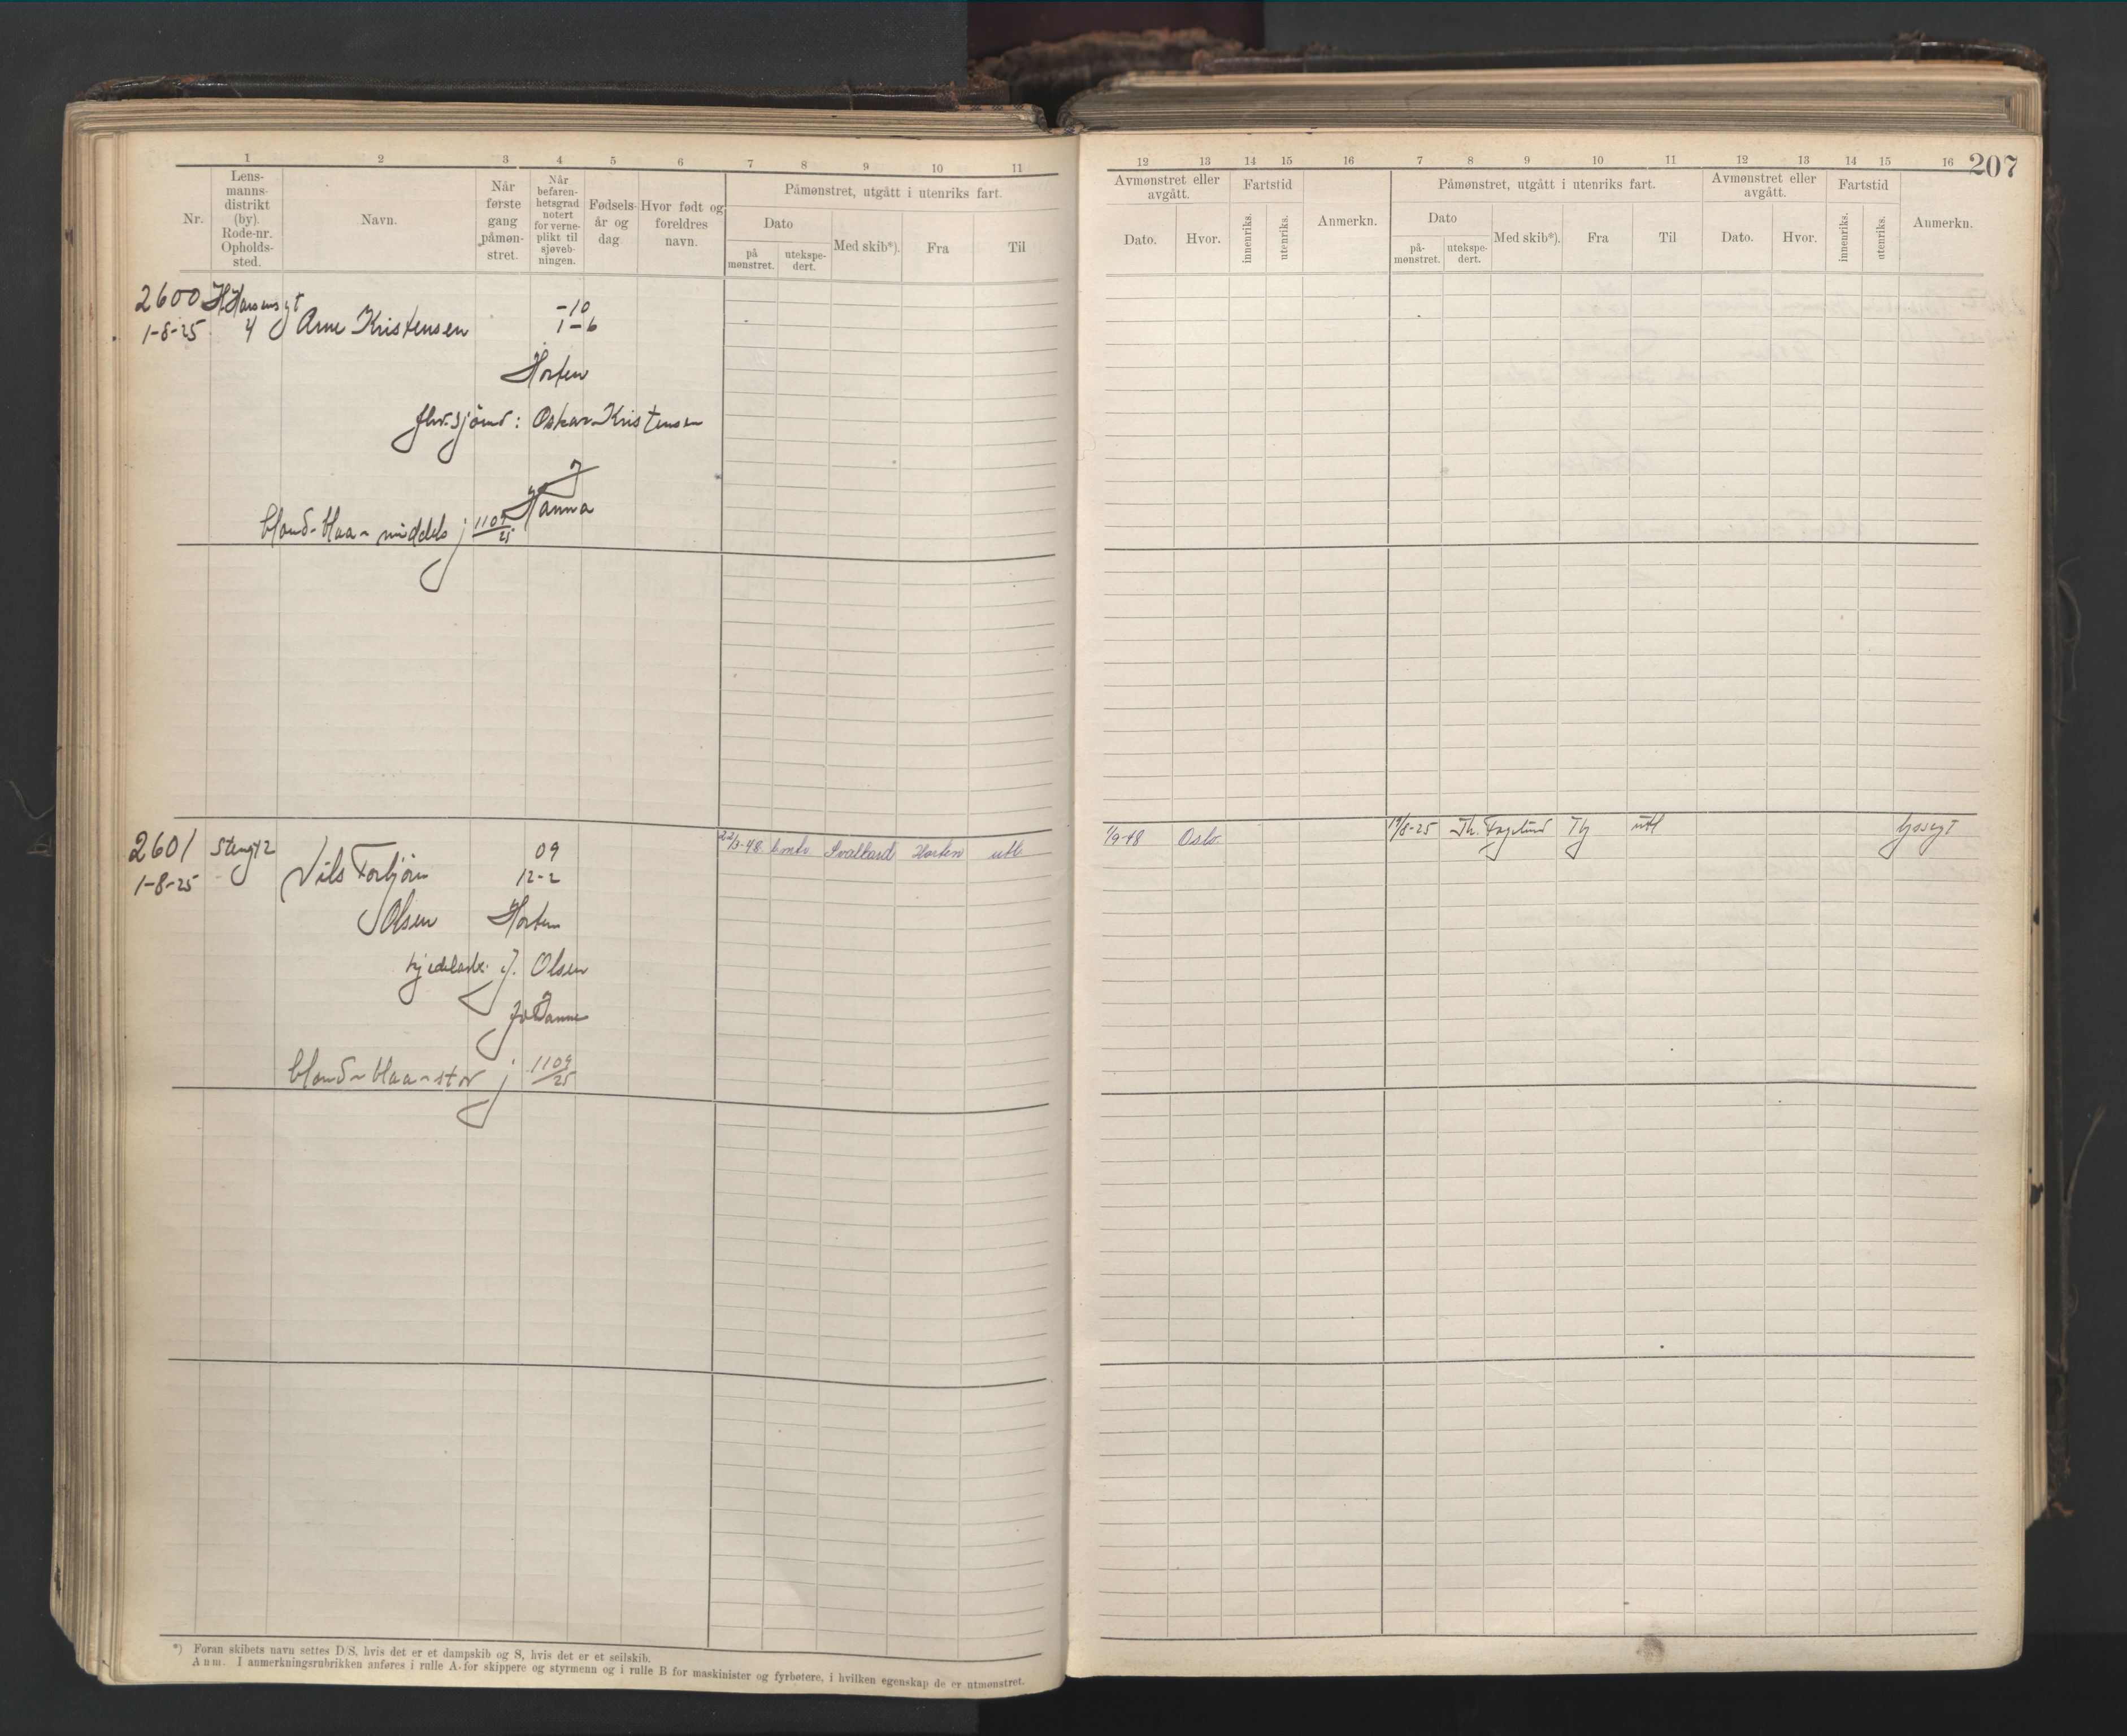 1 2 3 4 5 6 7 8 9 10 11
Nr.
Lens-
manns-
distrikt
(by).
Rode-nr.
Opholds-
sted.
Navn.
Når
første
gang
påmøn-
stret.
Når
befaren-
hetsgrad
notert
for verne-
plikt til
sjøveb-
ningen.
Fødsels-
år og
dag
Hvor født og
foreldres
navn.
Påmønstret, utgått i utenriks fart.
Dato
på
mønstret.
utekspe-
dert.
Med skib*).
Fra
Til
2600
1-8-25 4 Arne Kristensen
-10
1-6
Horten
: Oskar Kristensen
Hanna
blond-blaa-middels j 1109/25
2601
1-8-25
Nils Torbjörn
Olsen
09
12-2
Horten
J. Olsen
blond-blaa-stor j 1109/25
22/3-48 Svalbard Horten utl
*) Foran skibets navn settes D/S, hvis det er et dampskib og S, hvis det er et seilskib.
Anm. I anmerkningsrubrikken anføres i rulle A for skippere og styrmenn og i rulle B for maskinister og fyrbøtere, i hvilken egenskap de er utmønstret.
12 13 14 15 16 7 8 9 10 11 12 13 14 15 16
207
Avmønstret eller
avgått.
Dato.
Hvor.
Fartstid
innenriks.
utenriks.
Anmerkn.
Påmønstret, utgått i utenriks fart.
Dato
på-
mønstret.
utekspe-
dert.
Med skib*).
Fra
Til
Avmønstret eller
avgått.
Dato.
Hvor.
Fartstid
innenriks.
utenriks.
Anmerkn.
1/9-48 Oslo
19/8-25 Th. Fagelund Tbg utl